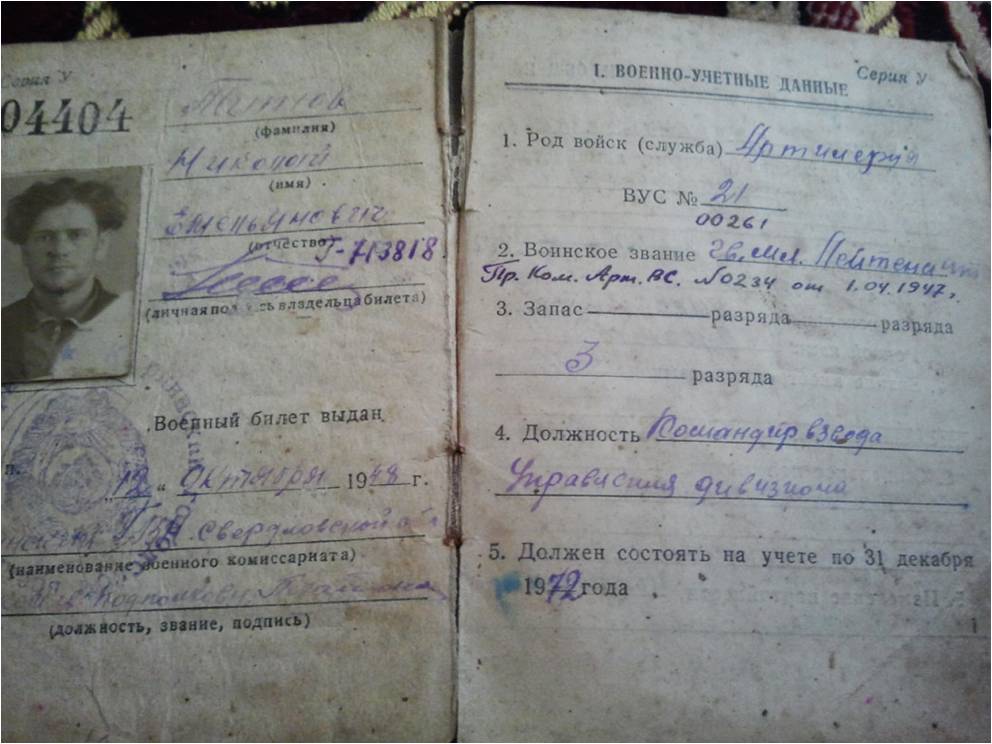 Серия У
04404
(фамилия)
Николай
(имя)
Емельянович
(отчество)
Т-713818
(личная подпись владельца билета)
Военный билет выдан
"12" октября 1948 г.
РВК Свердловской
(наименование военного комиссариата)
(должность, звание, подпись)
Серия У
I. ВОЕННО-УЧЕТНЫЕ ДАННЫЕ
1. Род войск (служба) Артилерия
ВУС № 21
00261
2. Воинское звание Гв. мл. Лейтенант
Пр. Ком. Арт. ВС. № 0234 от 1.04.1947г.
3. Запас разряда разряда
3 разряда
4. Должность Командир взвода
Управления дивизиона
5. Должен состоять на учете по 31 декабря
1972 года
1